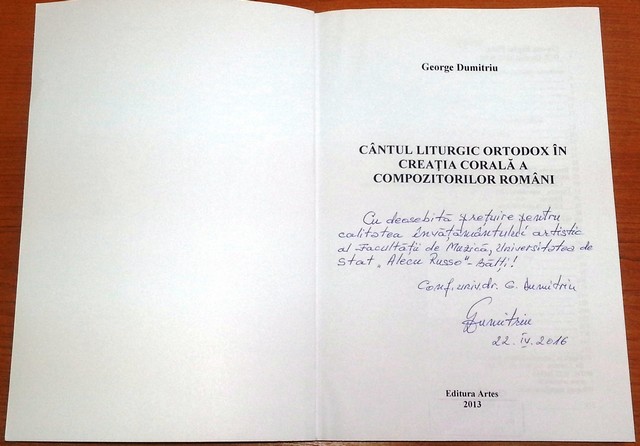 George Dumitriu
CÂNTUL LITURGIC ORTODOX ÎN
CREAȚIA CORALĂ A
COMPOZITORILOR ROMÂNI
Cu deosebită prețuire pentru
calitatea învățământului artistic
al Facultății de Muzică, Universitatea de
Stat „Alecu Russo" - Bălți!
Conf. univ. dr. G. Dumitriu
GDumitriu
22. IV. 2016
Editura Artes
2013